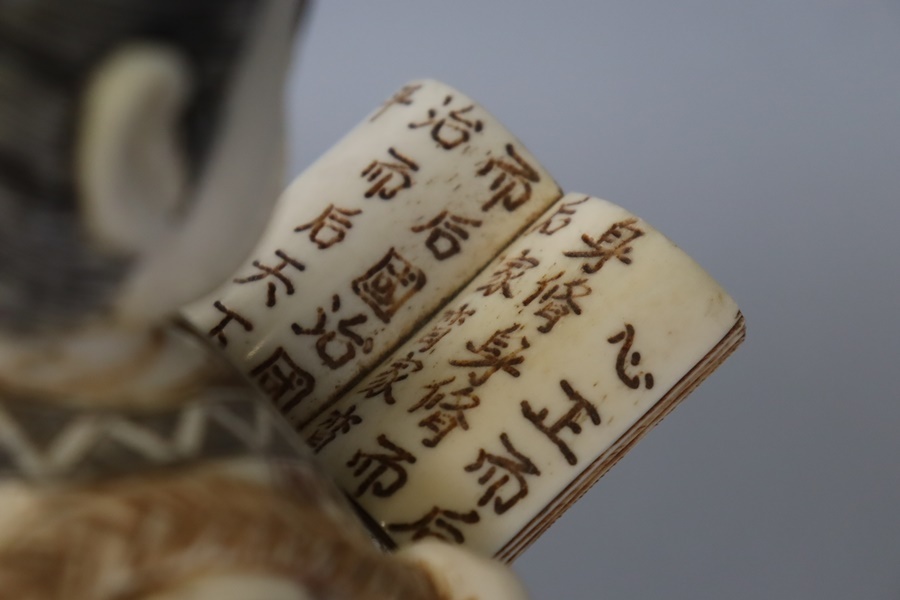 心正而后
身脩身脩而
后家齊家齊
而后國治國
治而后天下
平